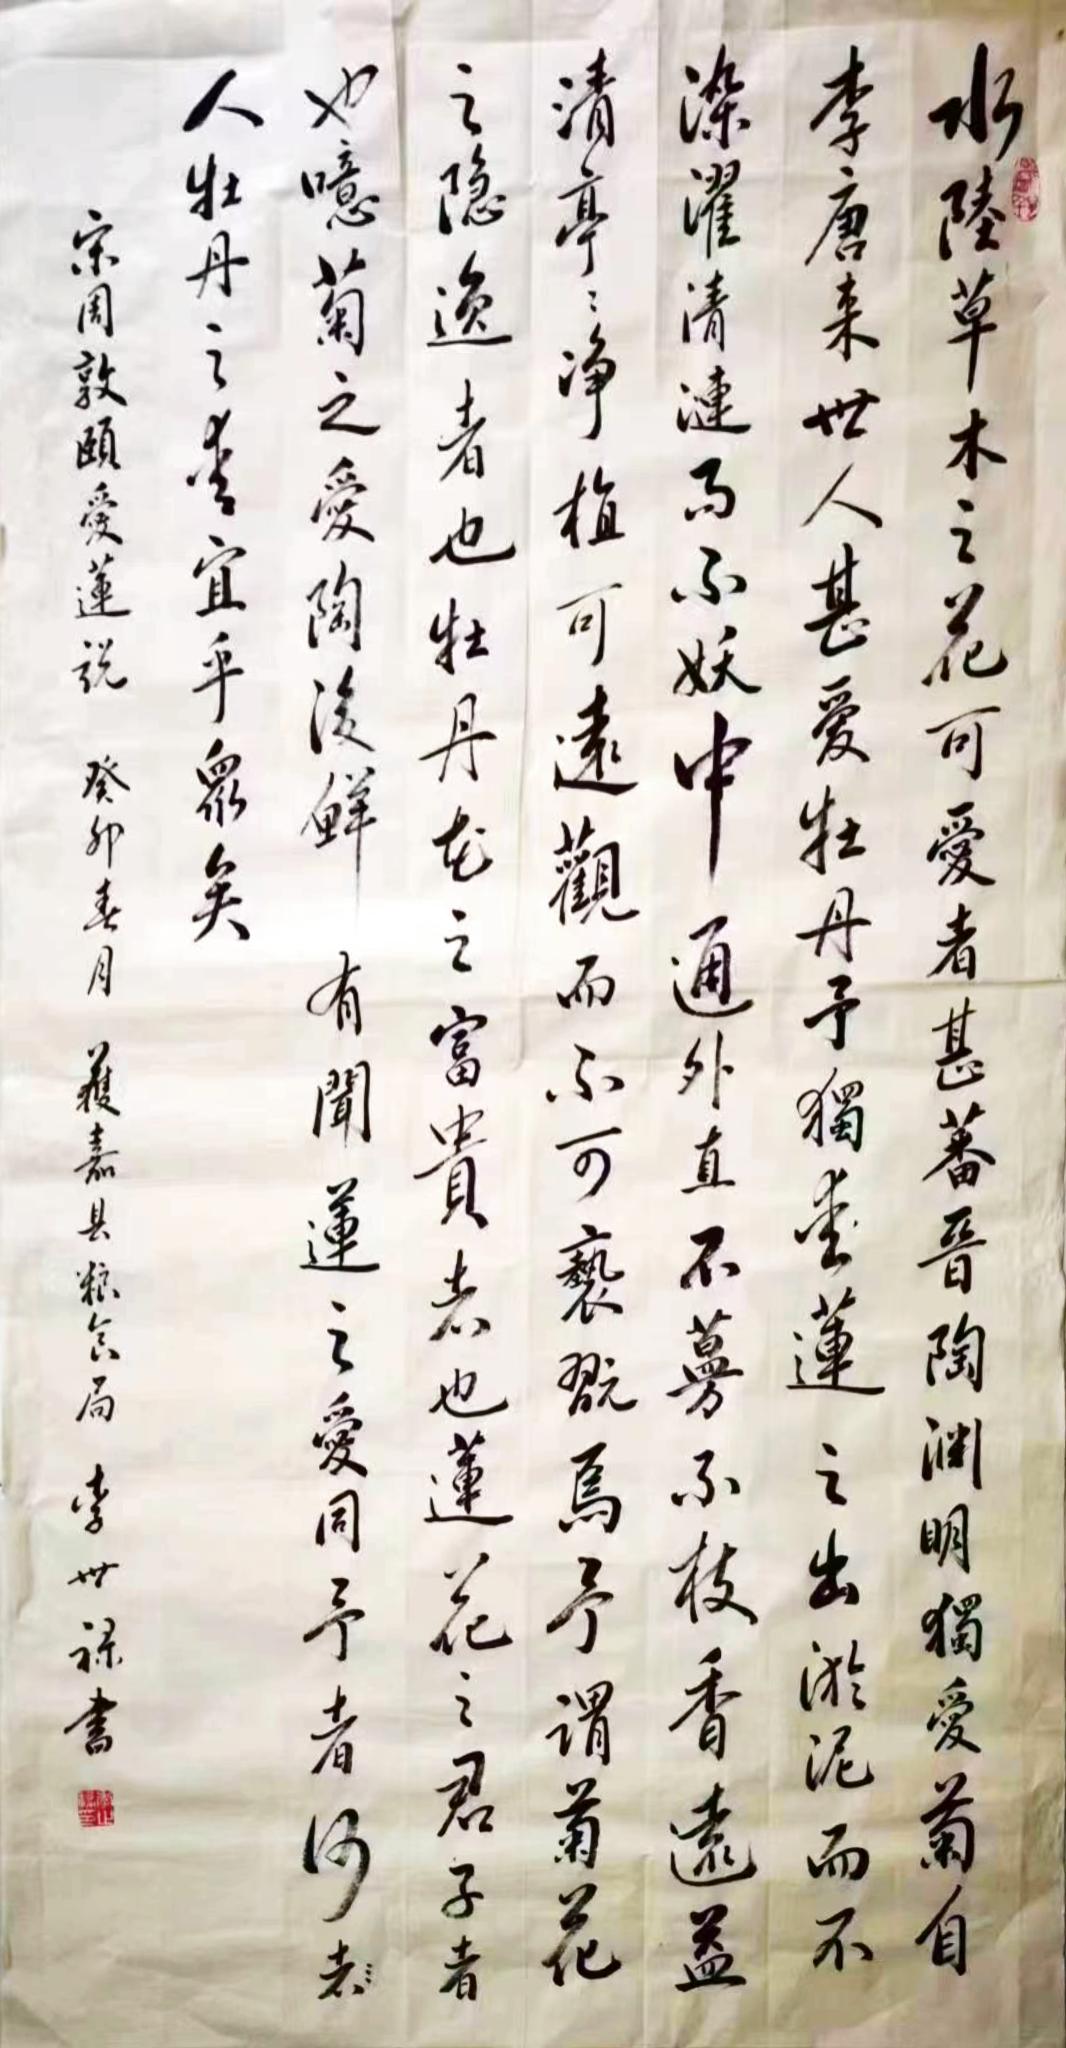 水陸草木之花可愛者甚蕃晉陶渊明獨愛菊自
李唐来世人甚愛牡丹予獨愛蓮之出淤泥而不
染濯清漣而不妖中通外直不蔓不枝香遠益
清亭〻净植可遠觀而不可褻翫焉予謂菊花
之隐逸者也牡丹花之富貴者也蓮花之君子者
也噫菊之愛陶後鮮有聞蓮之愛同予者何者〻
人牡丹之愛宜乎眾矣
宋周敦頤愛蓮説 癸卯春月 獲嘉县粮食局 李世禄書